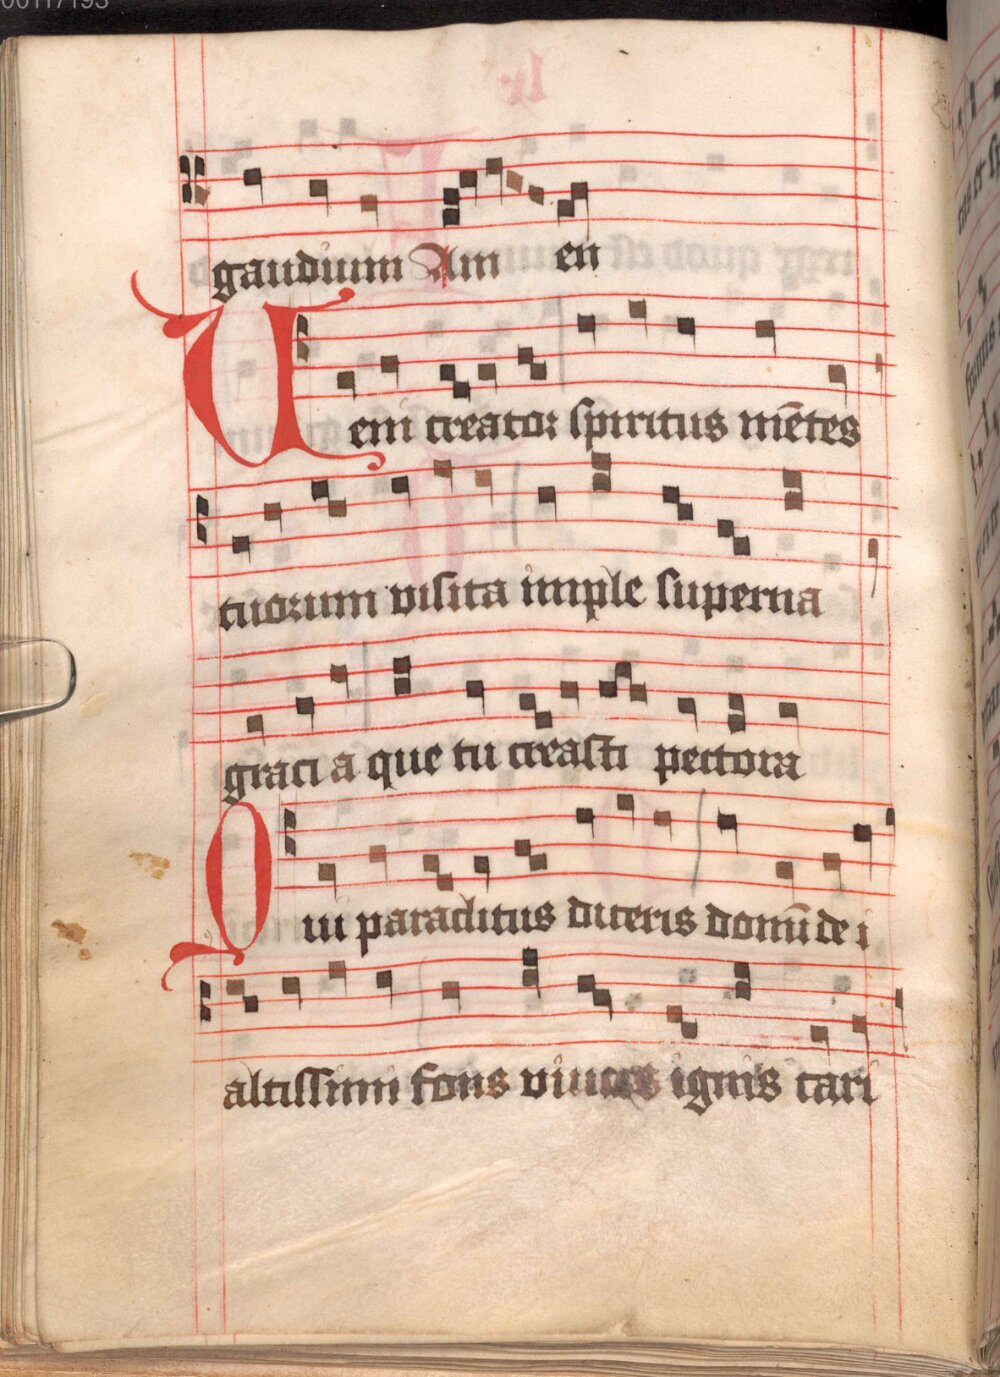 00117193
gaudium Amen
Ueni creator spiritus mētes
tuorum visita imple superna
gracia que tu creasti pectora
Qui paraclitus diceris donū dei
altissimi fons viuus ignis cari